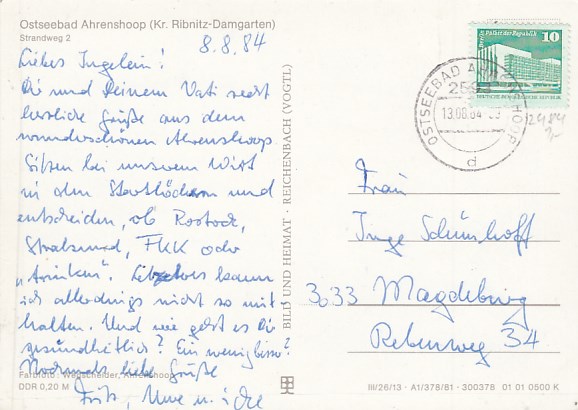 Ostseebad Ahrenshoop (Kr. Ribnitz-Damgarten)
Strandweg 2
8.8.84
Liebes Ingelein!
Dir und Deinem Vati recht
herzliche Grüße aus dem
wunderschönen Ahrenshoop
Sitzen bei unserem Wirt
in den und
entscheiden, ob Rostock,
Stralsund, FKK oder
"trinken". Letzteres kann
ich allerdings nicht so mit
halten. Und wie geht es Dir
gesundheitlich? Ein wenig besser?
Nochmals liebe Grüße
Fritz, u.
Farbfoto: Wegscheider, Ahrenshoop
DDR 0,20 M
BILD UND HEIMAT · REICHENBACH (VOGTL)
OSTSEEBAD AHRENSHOOP
13.08.84
d
Palast der Republik
10
DEUTSCHE DEMOKRATISCHE REPUBLIK
Frau
Inge Schünhoff
3033 Magdeburg
Rebenweg 34
III/26/13 · A1/378/81 · 300378 01 01 0500 K